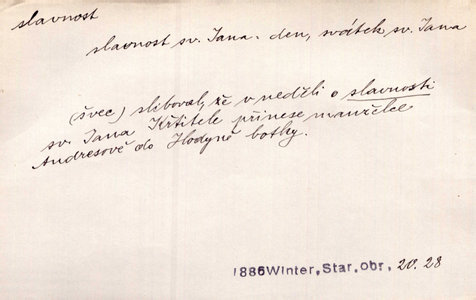 slavnost
slavnost sv. Jana. den, svátek sv. Jana
(švec) sliboval, že v neděli o slavnosti
sv. Jana Křtitele přinese manželce
Andresově do Hodyně botky.
1886Winter,Star,Obr, 20. 28